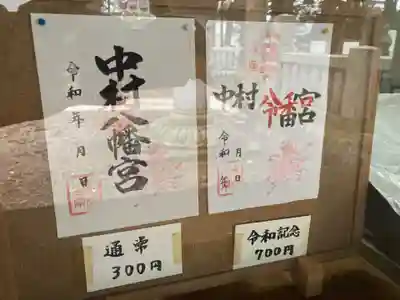 中村八幡宮
令和 年 月 日
中村
宮
令和 月 日
通常
300円
令和記念
700円